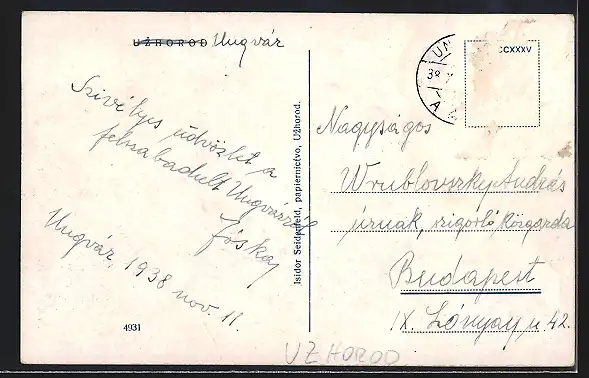 UŽHOROD Ungvár
Szivélyes üdvözlet a
felszabadult Ungvárról
Jóskay
Ungvár, 1938 nov. 11.
4931
Isidor Seidenfeld, papiernictvo, Užhorod.
UN
38
A
CCXXXV
Nagyságos
Wrublovszky András
úrnak, szigorló közgazda
Budapest
IX. Lónyay u. 42.
UZHOROD